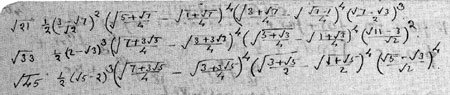 √21 ½(3-√7/√2)² (√5+√7/4 - √1+√7/4)⁴ (√3+√7/4 - √√7-1/4)⁴ (√7-2√3)³
√33 ½(2-√3)³ (√7+3√3/4 - √3+3√3/4)⁴ (√5+√3/4 - √1+√3/4)⁴ (√11-3/√2)²
√45 ½(√5-2)³ (√7+3√5/4 - √3+3√5/4)⁴ (√3+√5/2 - √1+√5/2)⁴ (√5-√3/√2)⁴